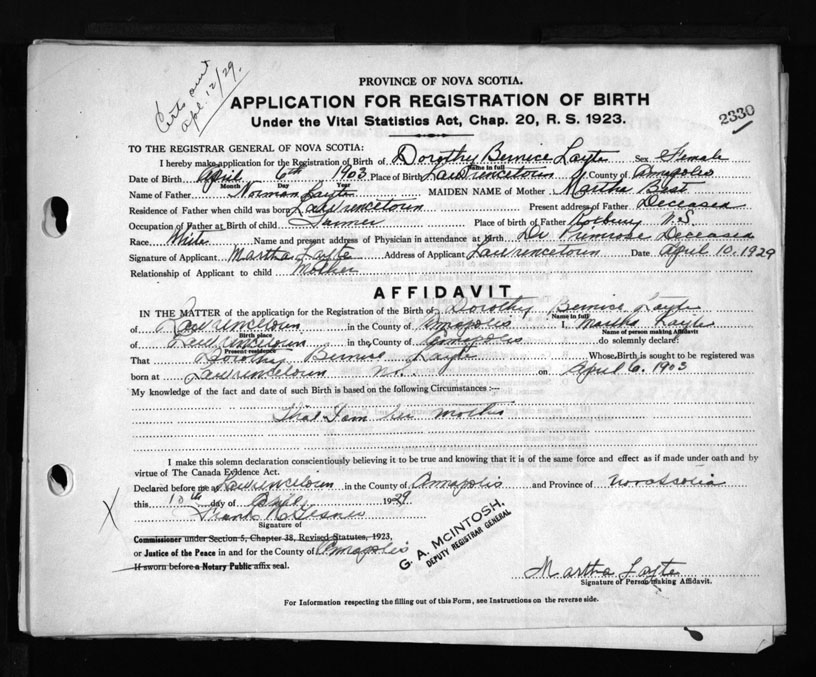 Certs sent
Apl. 12/29.
PROVINCE OF NOVA SCOTIA.
APPLICATION FOR REGISTRATION OF BIRTH
Under the Vital Statistics Act, Chap. 20, R. S. 1923.
2330
TO THE REGISTRAR GENERAL OF NOVA SCOTIA:
I hereby make application for the Registration of Birth of Dorothy Bernice Layte Sex Female
Name in full
Date of Birth April 6th 1903 Place of Birth Lawrencetown County of Annapolis
Month Day Year
Name of Father Norman Layte MAIDEN NAME of Mother Martha Best
Residence of Father when child was born Lawrencetown Present address of Father Deceased
Occupation of Father at Birth of child Farmer Place of birth of Father Roxbury N.S
Race White Name and present address of Physician in attendance at Birth Dr Primrose Deceased
Signature of Applicant Martha Layte Address of Applicant Lawrencetown Date April 10, 1929
Relationship of Applicant to child Mother
AFFIDAVIT
IN THE MATTER of the application for the Registration of the Birth of Dorothy Bernice Layte
Name in full
of Lawrencetown in the County of Annapolis I, Martha Layte
Birth place Name of person making Affidavit
of Lawrencetown in the County of Annapolis do solemnly declare:
Present residence
That Dorothy Bernice Layte Whose Birth is sought to be registered was
born at Lawrencetown on April 6, 1903
My knowledge of the fact and date of such Birth is based on the following Circumstances :—
That I am her mother
I make this solemn declaration conscientiously believing it to be true and knowing that it is of the same force and effect as if made under oath and by
virtue of The Canada Evidence Act.
Declared before me at Lawrencetown in the County of Annapolis and Province of Nova Scotia
this 10th day of April 1929
X
Signature of
Commissioner under Section 5, Chapter 38, Revised Statutes, 1923,
or Justice of the Peace in and for the County of Annapolis
If sworn before a Notary Public affix seal.
G. A. McINTOSH,
DEPUTY REGISTRAR GENERAL
Martha Layte
Signature of Person making Affidavit.
For Information respecting the filling out of this Form, see Instructions on the reverse side.